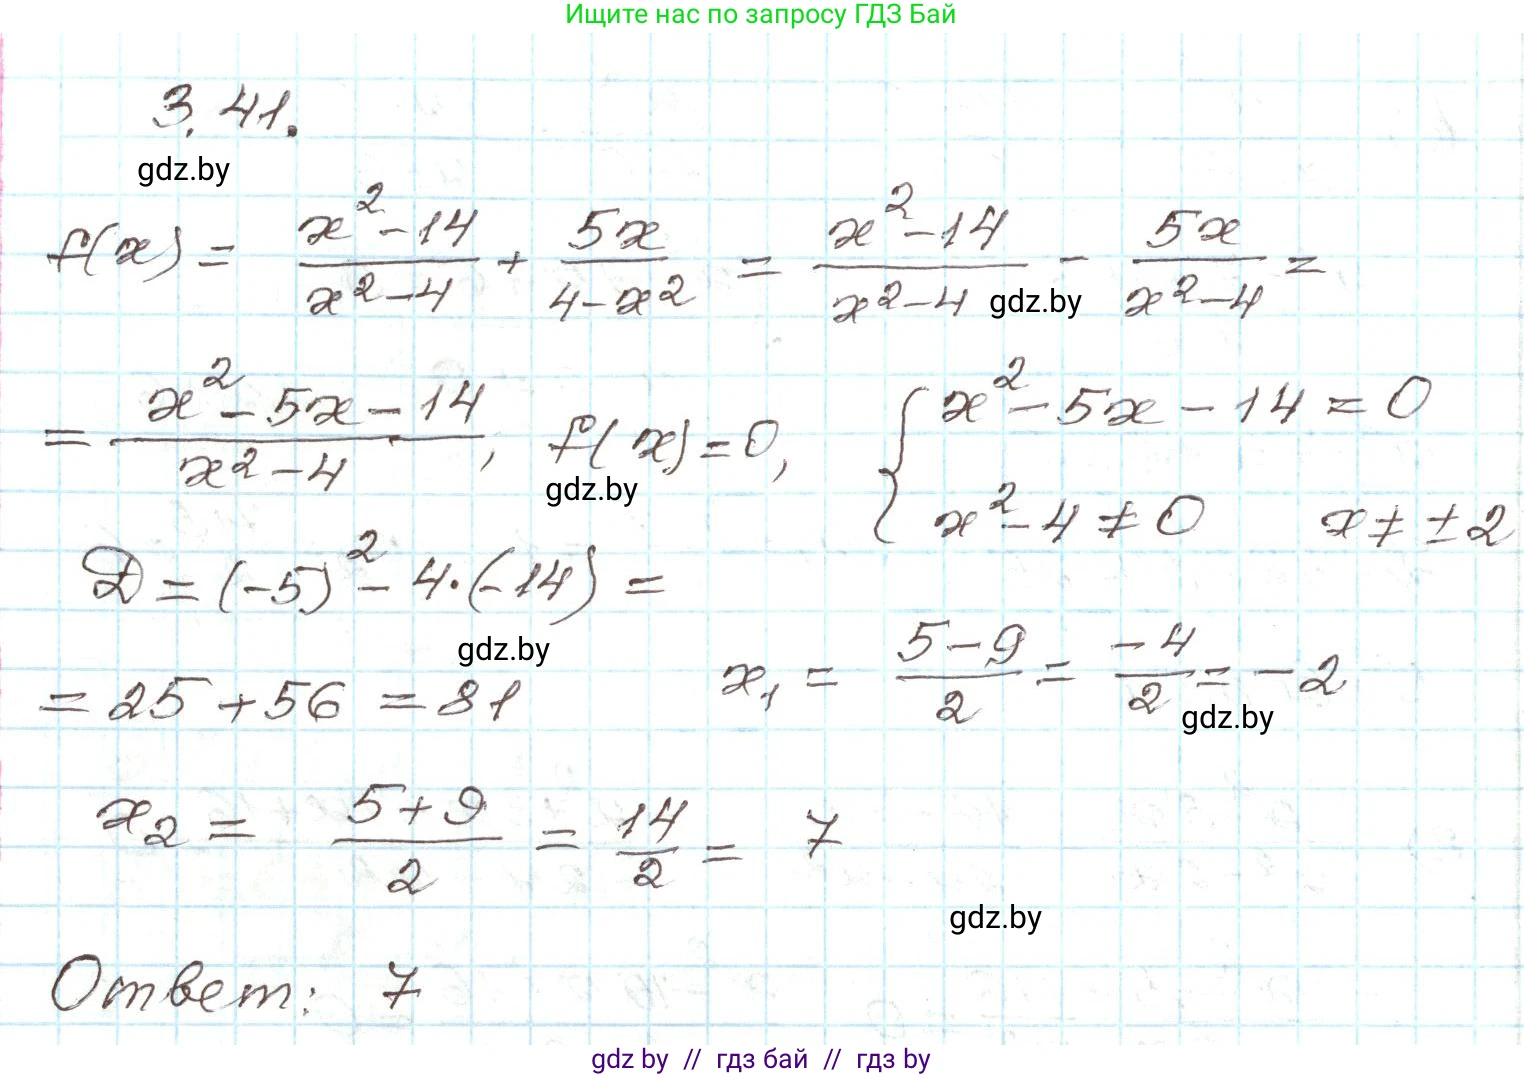 Ищите нас по запросу ГДЗ Бай
3.41.
gdz.by
f(x) = \frac{x^2-14}{x^2-4} + \frac{5x}{4-x^2} = \frac{x^2-14}{x^2-4} - \frac{5x}{x^2-4} =
gdz.by
= \frac{x^2-5x-14}{x^2-4}, f(x)=0, { x^2-5x-14=0
x^2-4≠0 x≠±2
gdz.by
D=(-5)^2-4·(-14)=
gdz.by
=25+56=81 x_1 = \frac{5-9}{2} = \frac{-4}{2} = -2
gdz.by
x_2 = \frac{5+9}{2} = \frac{14}{2} = 7
gdz.by
Ответ: 7
gdz by // гдз бай // гдз by